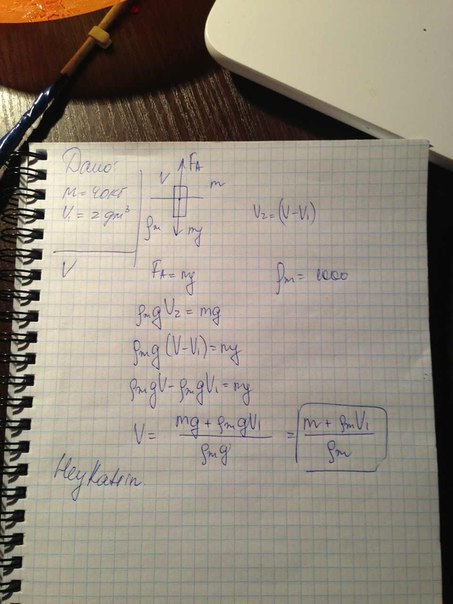 Дано:
m = 40 кг
V₁ = 2 дм³
V
V
F_A
m
ρ_ж
mg
V₂ = (V-V₁)
F_A = mg
ρ_ж = 1000
ρ_ж g V₂ = mg
ρ_ж g (V-V₁) = mg
ρ_ж gV - ρ_ж gV₁ = mg
V = (mg + ρ_ж gV₁)/(ρ_ж g) = (m + ρ_ж V₁)/ρ_ж
HeyKatrin